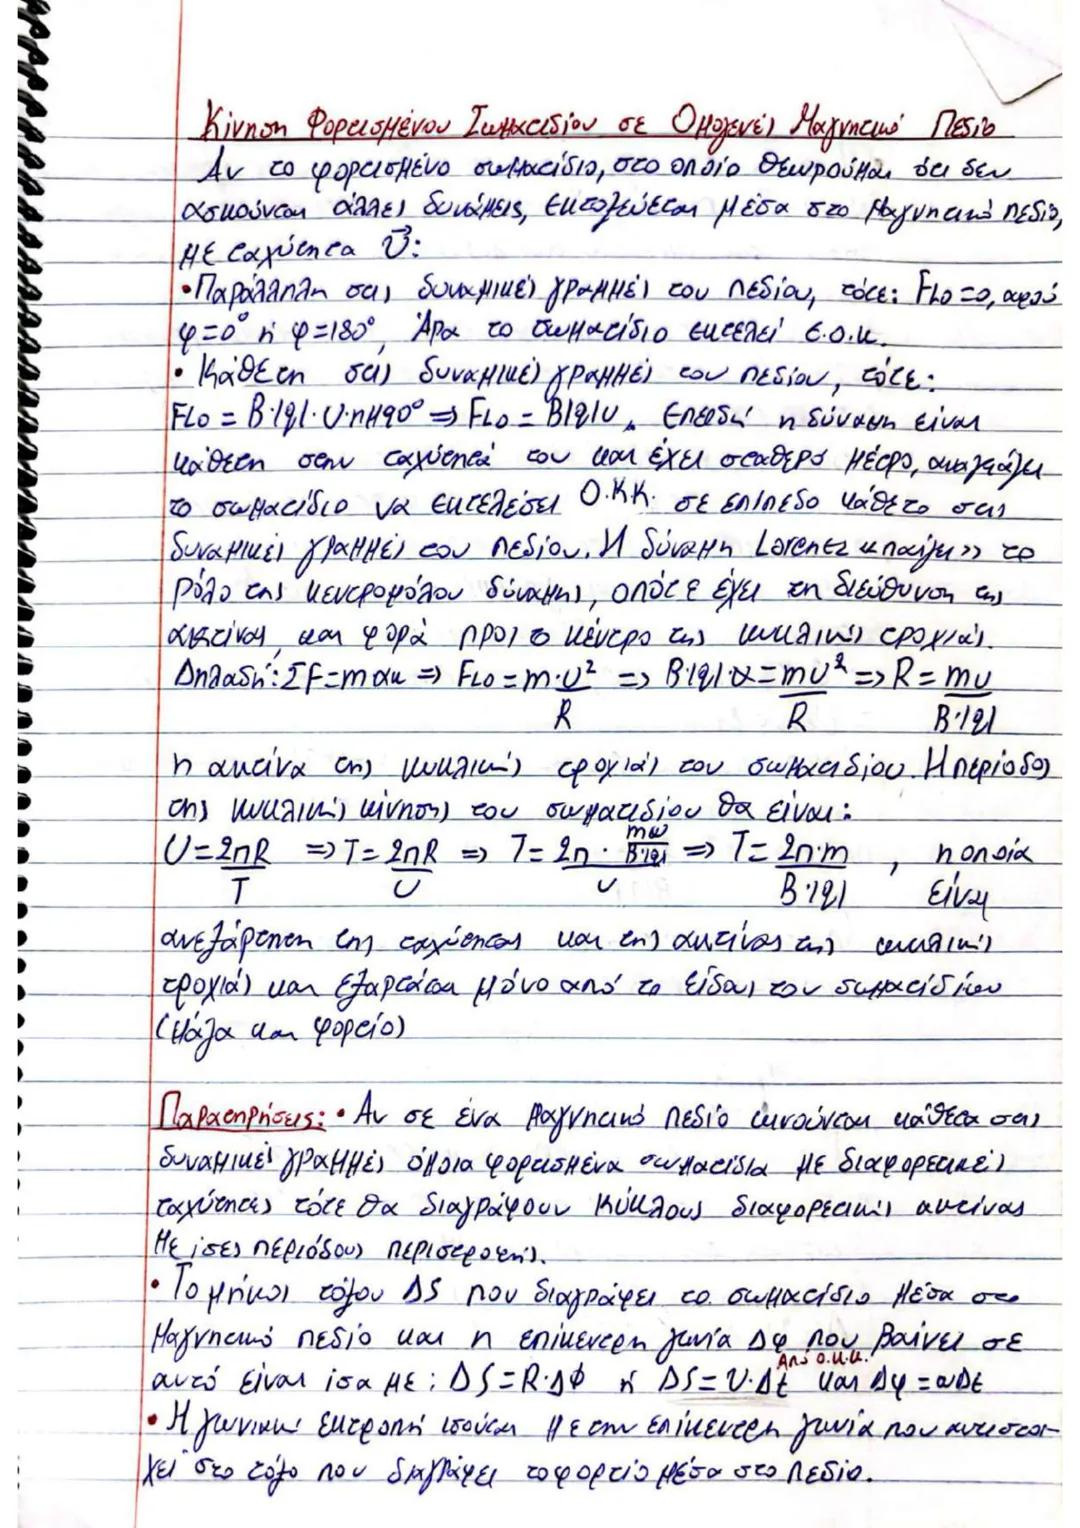 Κίνηση Φορτισμένου Σωματιδίου σε Ομογενές Μαγνητικό Πεδίο
Αν το φορτισμένο σωματίδιο, στο οποίο θεωρούμαι ότι δεν
ασκούνται άλλες δυνάμεις, εκτοξεύεται μέσα στο μαγνητικό πεδίο,
με ταχύτητα υ⃗:
•Παράλληλη στις δυναμικές γραμμές του πεδίου, τότε: FLo=0, αφού
φ=0° ή φ=180°, Άρα το σωματίδιο εκτελεί Ε.Ο.Κ.
• Κάθετη στις δυναμικές γραμμές του πεδίου, τότε:
FLo = B·|q|·υ·ημ90° ⇒ FLo = B|q|υ, Επειδή η δύναμη είναι
κάθετη στην ταχύτητά του και έχει σταθερό μέτρο, αναγκάζει
το σωματίδιο να εκτελέσει Ο.Κ.Κ. σε επίπεδο κάθετο στις
δυναμικές γραμμές του πεδίου. Η δύναμη Lorentz «παίζει» το
ρόλο της κεντρομόλου δύναμης, οπότε έχει τη διεύθυνση της
ακτίνας και φορά προς το κέντρο της κυκλικής τροχιάς.
Δηλαδή: ΣF=mακ ⇒ FLo = m·υ²/R ⇒ B·|q|·υ = mυ²/R ⇒ R = mυ/B·|q|
η ακτίνα της κυκλικής τροχιάς του σωματιδίου. Η περίοδος
της κυκλικής κίνησης του σωματιδίου θα είναι:
υ=2πR/T ⇒ T=2πR/υ ⇒ T= 2π·mυ/B·|q|/υ ⇒ T= 2π·m/B·|q| , η οποία είναι
ανεξάρτητη της ταχύτητας και της ακτίνας της κυκλικής
τροχιάς και εξαρτάται μόνο από το είδος του σωματιδίου
(μάζα και φορτίο)
Παρατηρήσεις: • Αν σε ένα μαγνητικό πεδίο κινούνται κάθετα στις
δυναμικές γραμμές όμοια φορτισμένα σωματίδια με διαφορετικές
ταχύτητες τότε θα διαγράψουν κύκλους διαφορετικής ακτίνας
με ίσες περιόδους περιστροφής.
• Το μήκος τόξου ΔS που διαγράφει το σωματίδιο μέσα στο
μαγνητικό πεδίο και η επίκεντρη γωνία Δφ που βαίνει σε
αυτό είναι ίσα με: ΔS=R·Δφ ή ΔS=υ·Δt Από Ο.Κ.Κ. και Δφ=ωΔt
• Η γωνιακή εκτροπή ισούται με την επίκεντρη γωνία που αντιστοι-
χεί στο τόξο που διαγράφει το φορτίο μέσα στο πεδίο.